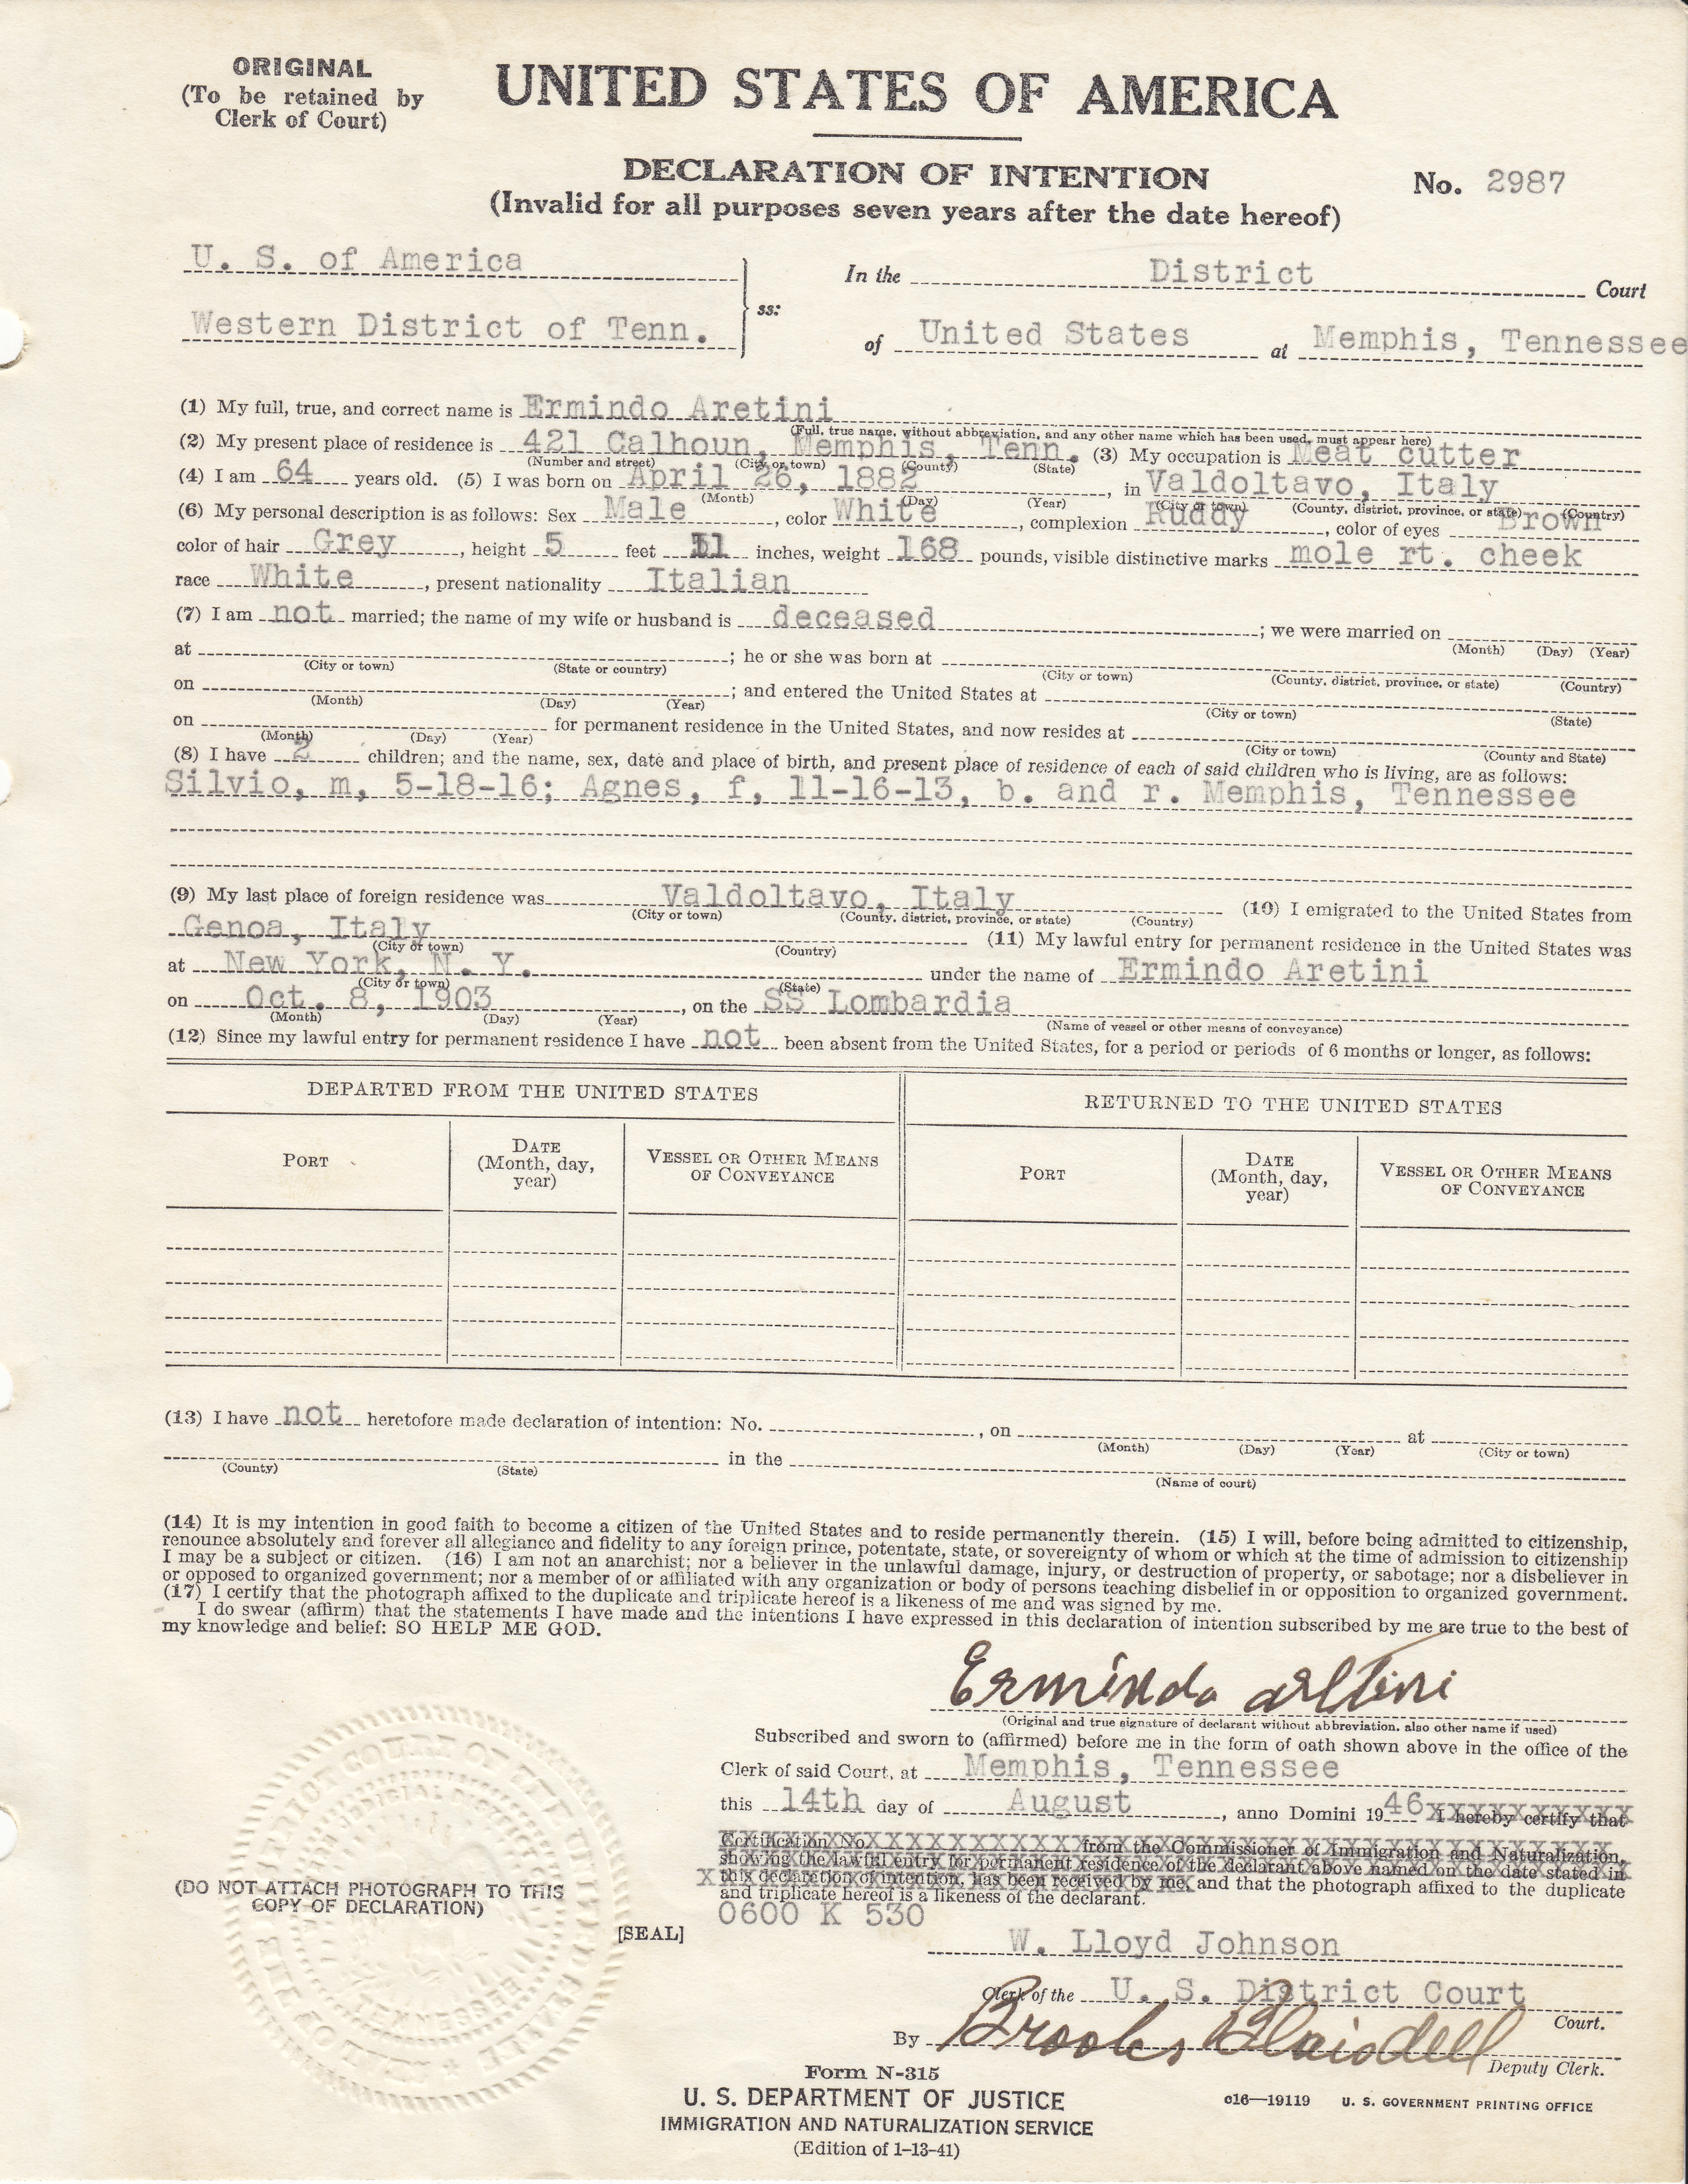 ORIGINAL
(To be retained by
Clerk of Court)
UNITED STATES OF AMERICA
DECLARATION OF INTENTION
(Invalid for all purposes seven years after the date hereof)
No. 2987
U. S. of America
Western District of Tenn.
ss:
In the District Court
of United States at Memphis, Tennessee
(1) My full, true, and correct name is Ermindo Aretini
(Full, true name, without abbreviation, and any other name which has been used, must appear here)
(2) My present place of residence is 421 Calhoun, Memphis, Tenn. (3) My occupation is Meat cutter
(Number and street) (City or town) (County) (State)
(4) I am 64 years old. (5) I was born on April 26, 1882, in Valdoltavo, Italy
(Month) (Day) (Year) (City or town) (County, district, province, or state) (Country)
(6) My personal description is as follows: Sex Male, color White, complexion Ruddy, color of eyes Brown
color of hair Grey, height 5 feet 11 inches, weight 168 pounds, visible distinctive marks mole rt. cheek
race White, present nationality Italian
(7) I am not married; the name of my wife or husband is deceased; we were married on
(Month) (Day) (Year)
at ; he or she was born at
(City or town) (State or country) (City or town) (County, district, province, or state) (Country)
on ; and entered the United States at
(Month) (Day) (Year) (City or town) (State)
on for permanent residence in the United States, and now resides at
(Month) (Day) (Year) (City or town) (County and State)
(8) I have 2 children; and the name, sex, date and place of birth, and present place of residence of each of said children who is living, are as follows:
Silvio, m, 5-18-16; Agnes, f, 11-16-13, b. and r. Memphis, Tennessee
(9) My last place of foreign residence was Valdoltavo, Italy (10) I emigrated to the United States from
(City or town) (County, district, province, or state) (Country)
Genoa, Italy (11) My lawful entry for permanent residence in the United States was
(City or town) (Country)
at New York, N. Y. under the name of Ermindo Aretini
(City or town) (State)
on Oct. 8, 1903, on the SS Lombardia
(Month) (Day) (Year) (Name of vessel or other means of conveyance)
(12) Since my lawful entry for permanent residence I have not been absent from the United States, for a period or periods of 6 months or longer, as follows:
DEPARTED FROM THE UNITED STATES RETURNED TO THE UNITED STATES
PORT DATE (Month, day, year) VESSEL OR OTHER MEANS OF CONVEYANCE PORT DATE (Month, day, year) VESSEL OR OTHER MEANS OF CONVEYANCE
(13) I have not heretofore made declaration of intention: No. , on at
(Month) (Day) (Year) (City or town)
in the
(County) (State) (Name of court)
(14) It is my intention in good faith to become a citizen of the United States and to reside permanently therein. (15) I will, before being admitted to citizenship,
renounce absolutely and forever all allegiance and fidelity to any foreign prince, potentate, state, or sovereignty of whom or which at the time of admission to citizenship
I may be a subject or citizen. (16) I am not an anarchist; nor a believer in the unlawful damage, injury, or destruction of property, or sabotage; nor a disbeliever in
or opposed to organized government; nor a member of or affiliated with any organization or body of persons teaching disbelief in or opposition to organized government.
(17) I certify that the photograph affixed to the duplicate and triplicate hereof is a likeness of me and was signed by me.
I do swear (affirm) that the statements I have made and the intentions I have expressed in this declaration of intention subscribed by me are true to the best of
my knowledge and belief: SO HELP ME GOD.
Ermindo Aretini
(Original and true signature of declarant without abbreviation, also other name if used)
Subscribed and sworn to (affirmed) before me in the form of oath shown above in the office of the
Clerk of said Court, at Memphis, Tennessee
this 14th day of August, anno Domini 1946 I hereby certify that
Certification No. from the Commissioner of Immigration and Naturalization,
showing the lawful entry for permanent residence of the declarant above named on the date stated in
this declaration of intention, has been received by me, and that the photograph affixed to the duplicate
and triplicate hereof is a likeness of the declarant.
0600 K 530
(DO NOT ATTACH PHOTOGRAPH TO THIS
COPY OF DECLARATION)
[SEAL]
W. Lloyd Johnson
Clerk of the U. S. District Court Court.
By Brooks Blaisdell Deputy Clerk.
Form N-315
U. S. DEPARTMENT OF JUSTICE
IMMIGRATION AND NATURALIZATION SERVICE
(Edition of 1-13-41)
c16—19119 U. S. GOVERNMENT PRINTING OFFICE